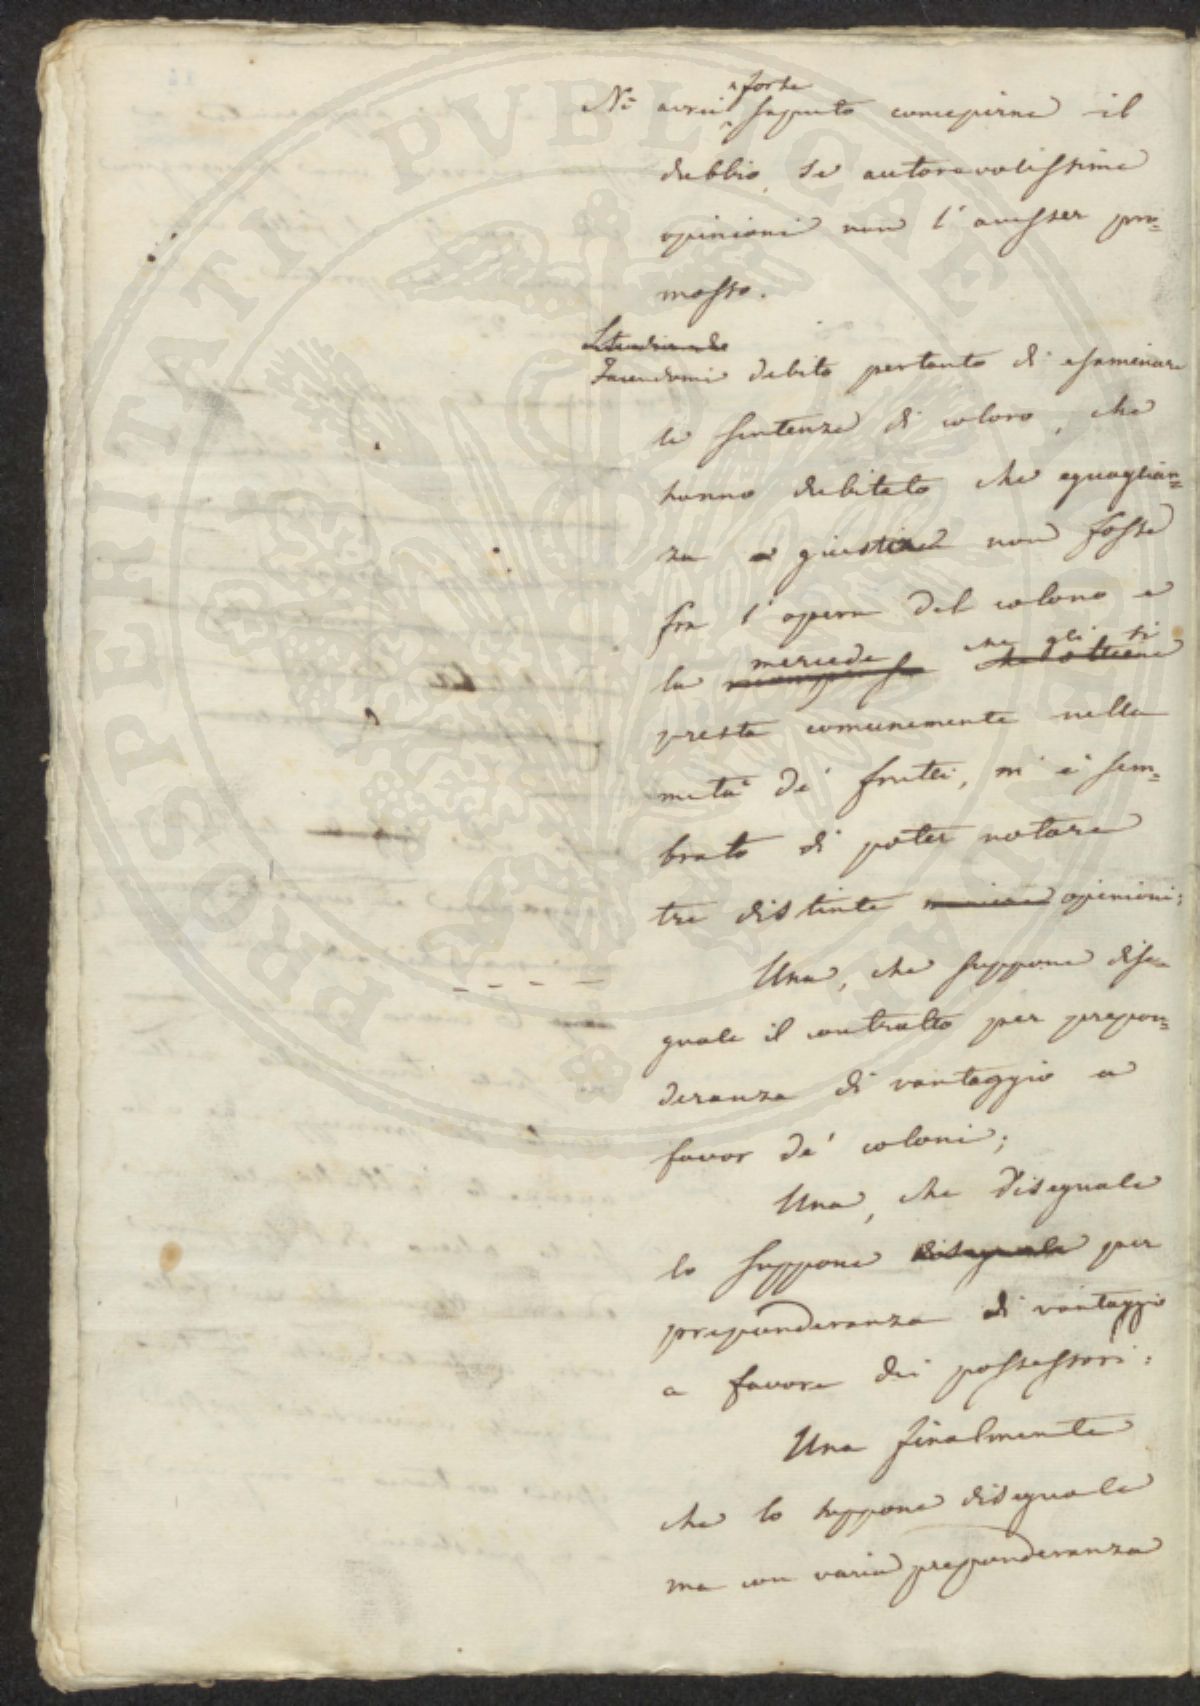 Nè avrei forse saputo concepirne il
dubbio, se autorevolissime
opinioni non l'avesser pro=
mosso.
Facendomi debito pertanto di esaminare
le sentenze di coloro, che
hanno dubitato che eguaglian=
za e giustizia non fosse
fra l'opera del colono e
la mercede che gli si
presta comunemente nella
metà de' frutti, m'è sem=
brato di poter notare
tre distinte opinioni:
Una, che suppone dise=
guale il contratto per prepon=
deranza di vantaggio a
favor de' coloni;
Una, che diseguale
lo suppone diseguale per
preponderanza di vantaggio
a favore dei possessori:
Una finalmente
che lo suppone diseguale
ma con varia preponderanza
PROSPERITATI PVBLICAE AVGENDAE